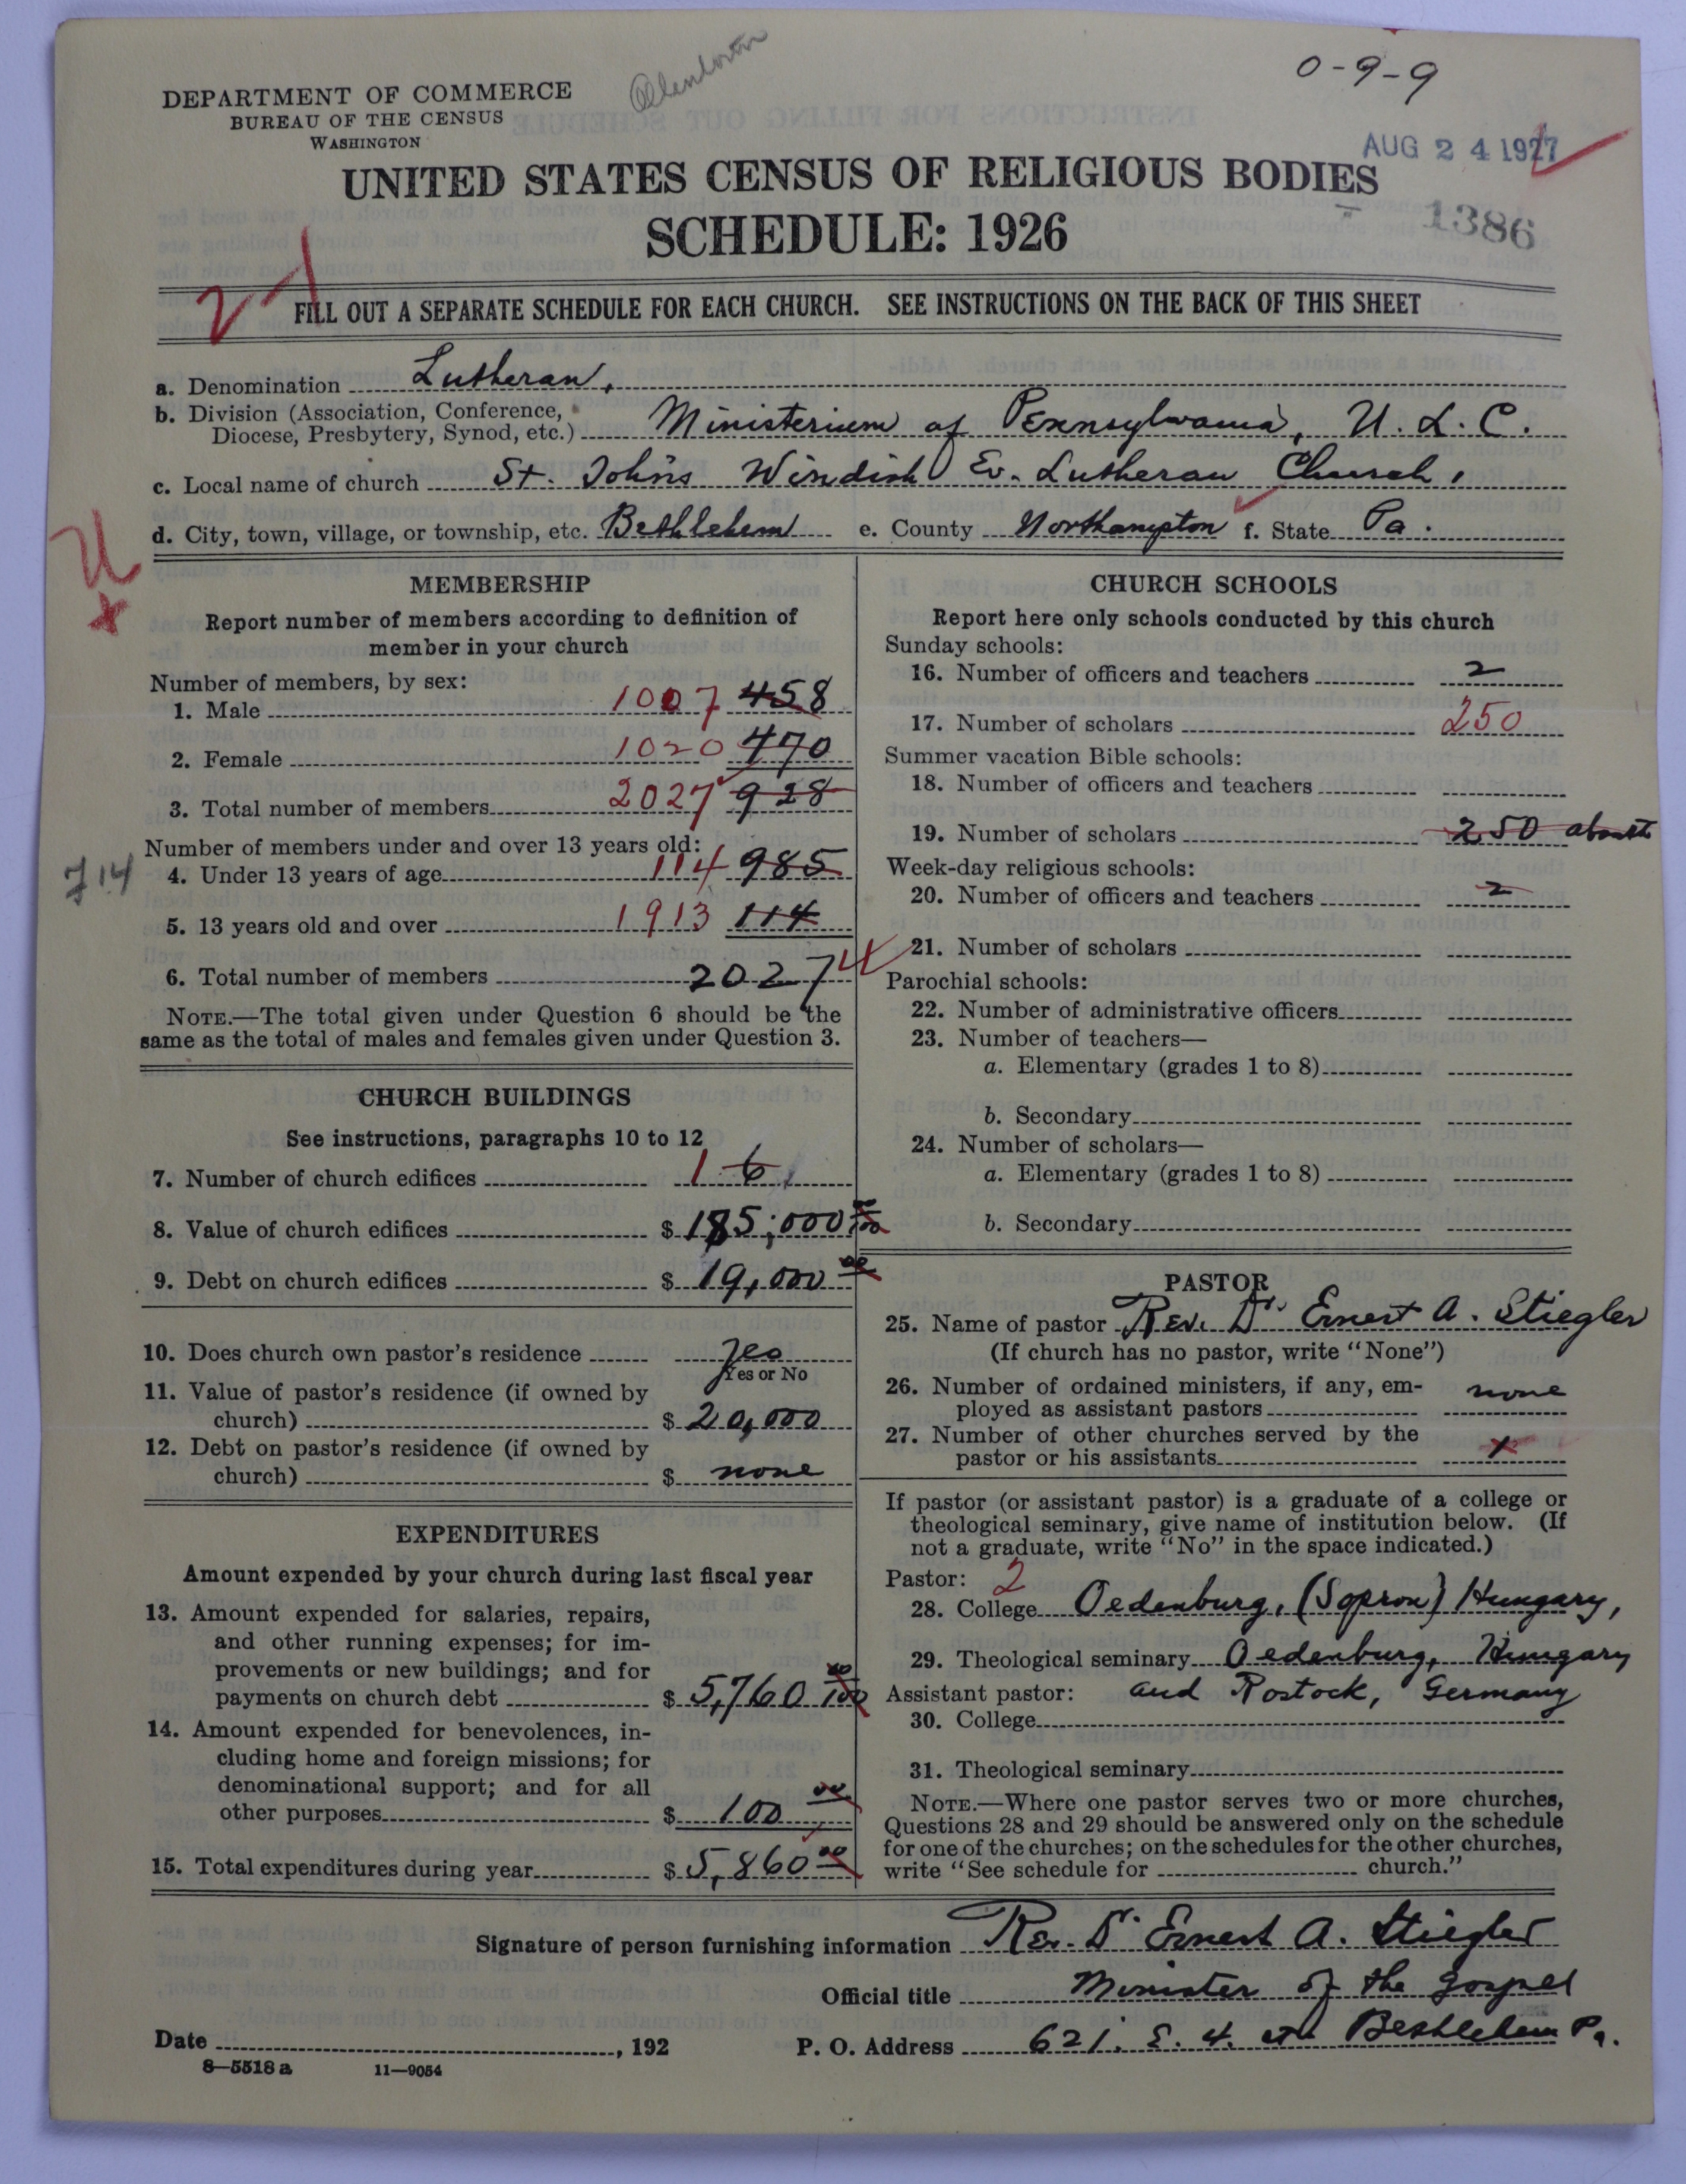 Allentown
0-9-9
DEPARTMENT OF COMMERCE
BUREAU OF THE CENSUS
WASHINGTON
AUG 24 1927
UNITED STATES CENSUS OF RELIGIOUS BODIES
SCHEDULE: 1926
1386
FILL OUT A SEPARATE SCHEDULE FOR EACH CHURCH. SEE INSTRUCTIONS ON THE BACK OF THIS SHEET
a. Denomination Lutheran.
b. Division (Association, Conference,
Diocese, Presbytery, Synod, etc.) Ministerium of Pennsylvania, U. L. C.
c. Local name of church St. John's Windish Ev. Lutheran Church,
d. City, town, village, or township, etc. Bethlehem e. County Northampton f. State Pa.
MEMBERSHIP
Report number of members according to definition of
member in your church
Number of members, by sex:
1. Male 1007 458
2. Female 1020 470
3. Total number of members 2027 928
Number of members under and over 13 years old:
714
4. Under 13 years of age 114 985
5. 13 years old and over 1913 114
6. Total number of members 2027
NOTE.—The total given under Question 6 should be the
same as the total of males and females given under Question 3.
CHURCH BUILDINGS
See instructions, paragraphs 10 to 12
7. Number of church edifices 1 6
8. Value of church edifices $ 185,000 00/100
9. Debt on church edifices $ 19,000 00
10. Does church own pastor's residence yes
Yes or No
11. Value of pastor's residence (if owned by
church) $ 20,000
12. Debt on pastor's residence (if owned by
church) $ none
EXPENDITURES
Amount expended by your church during last fiscal year
13. Amount expended for salaries, repairs,
and other running expenses; for im-
provements or new buildings; and for
payments on church debt $ 5,760 00/100
14. Amount expended for benevolences, in-
cluding home and foreign missions; for
denominational support; and for all
other purposes $ 100 00
15. Total expenditures during year $ 5,860 00
CHURCH SCHOOLS
Report here only schools conducted by this church
Sunday schools:
16. Number of officers and teachers 2
17. Number of scholars 250
Summer vacation Bible schools:
18. Number of officers and teachers
19. Number of scholars 250 about
Week-day religious schools:
20. Number of officers and teachers 2
21. Number of scholars
Parochial schools:
22. Number of administrative officers
23. Number of teachers—
a. Elementary (grades 1 to 8)
b. Secondary
24. Number of scholars—
a. Elementary (grades 1 to 8)
b. Secondary
PASTOR
25. Name of pastor Rev. Dr. Ernest A. Stiegler
(If church has no pastor, write "None")
26. Number of ordained ministers, if any, em-
ployed as assistant pastors none
27. Number of other churches served by the
pastor or his assistants
If pastor (or assistant pastor) is a graduate of a college or
theological seminary, give name of institution below. (If
not a graduate, write "No" in the space indicated.)
Pastor: 2
28. College Oedenburg, (Sopron) Hungary,
29. Theological seminary Oedenburg, Hungary
Assistant pastor: and Rostock, Germany
30. College
31. Theological seminary
NOTE.—Where one pastor serves two or more churches,
Questions 28 and 29 should be answered only on the schedule
for one of the churches; on the schedules for the other churches,
write "See schedule for church."
Signature of person furnishing information Rev. Dr. Ernest A. Stiegler
Official title Minister of the Gospel
Date , 192 P. O. Address 621. E. 4. str Bethlehem Pa.
8—5518 a 11—9054